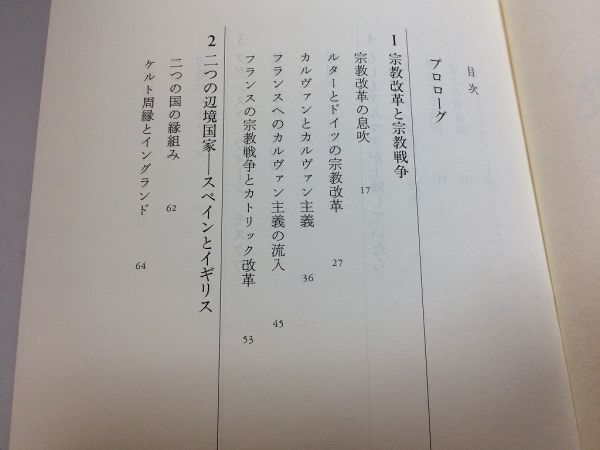 目次
プロローグ
1 宗教改革と宗教戦争
宗教改革の息吹 17
ルターとドイツの宗教改革 27
カルヴァンとカルヴァン主義 36
フランスへのカルヴァン主義の流入 45
フランスの宗教戦争とカトリック改革 53
2 二つの辺境国家――スペインとイギリス
二つの国の縁組み 62
ケルト周縁とイングランド 64